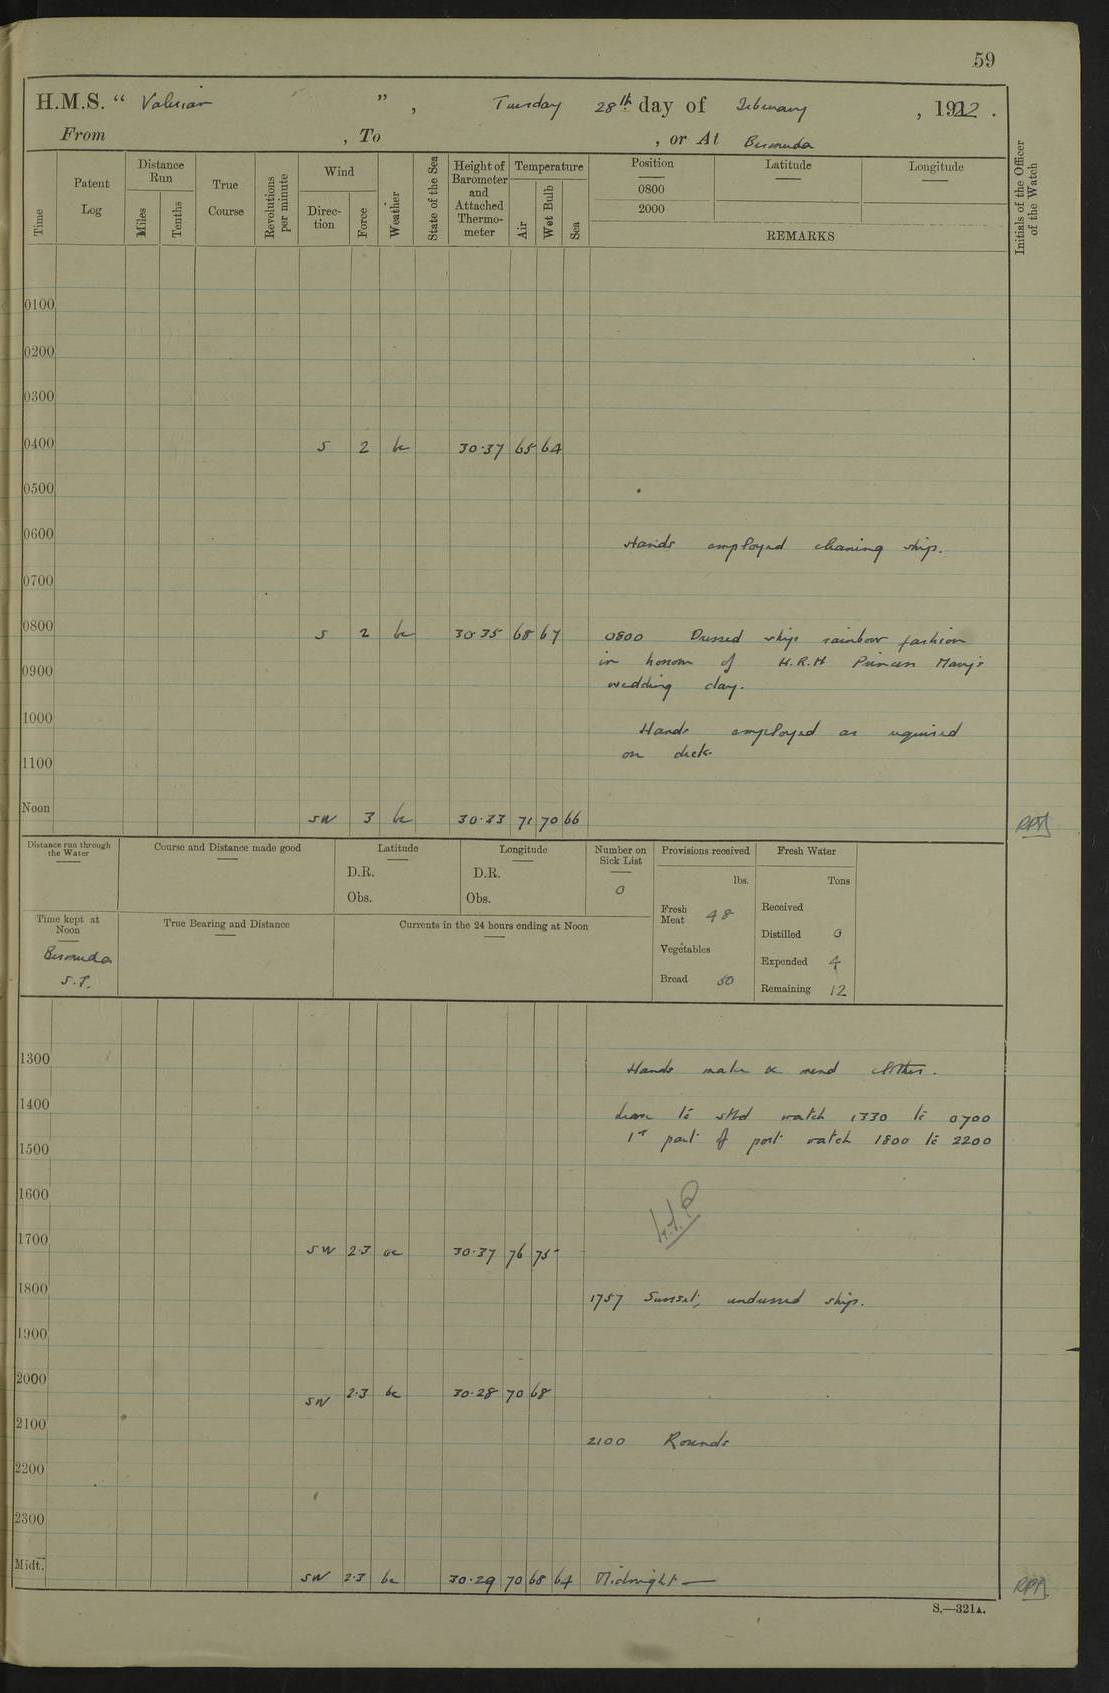 59
H.M.S. “ Valerian ” , Tuesday 28th day of February , 1922 .
From , To , or At Bermuda
Time
Patent Log
Distance Run
Miles
Tenths
True Course
Revolutions per minute
Wind
Direction
Force
Weather
State of the Sea
Height of Barometer and Attached Thermometer
Temperature
Air
Wet Bulb
Sea
Position
0800
2000
Latitude
Longitude
REMARKS
Initials of the Officer of the Watch
0100
0200
0300
0400 S 2 bc 30.37 65 64
0500
0600 Hands employed cleaning ship.
0700
0800 S 2 bc 30.35 68 67 0800 Dressed ship rainbow fashion
in honour of H.R.H Princess Mary's
0900 wedding day.
1000 Hands employed as required
on deck.
1100
Noon SW 3 bc 30.33 71 70 66
Distance run through the Water
Course and Distance made good
Latitude
D.R.
Obs.
Longitude
D.R.
Obs.
Number on Sick List
0
Provisions received
lbs.
Fresh Meat 48
Vegetables
Bread 50
Fresh Water
Tons
Received
Distilled 0
Expended 4
Remaining 12
Time kept at Noon
Bermuda
S.T.
True Bearing and Distance
Currents in the 24 hours ending at Noon
1300 Hands make & mend clothes.
1400 Leave to stbd watch 1330 to 0700
1500 1st part of port watch 1800 to 2200
1600
1700 SW 2.3 bc 30.37 76 75
1800 1757 Sunset, undressed ship.
1900
2000 SW 2.3 bc 30.28 70 68
2100 2100 Rounds
2200
2300
Midt. SW 2.3 bc 30.29 70 68 64 Midnight —
S.—321A.